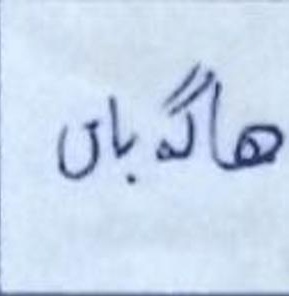 هاگ باس